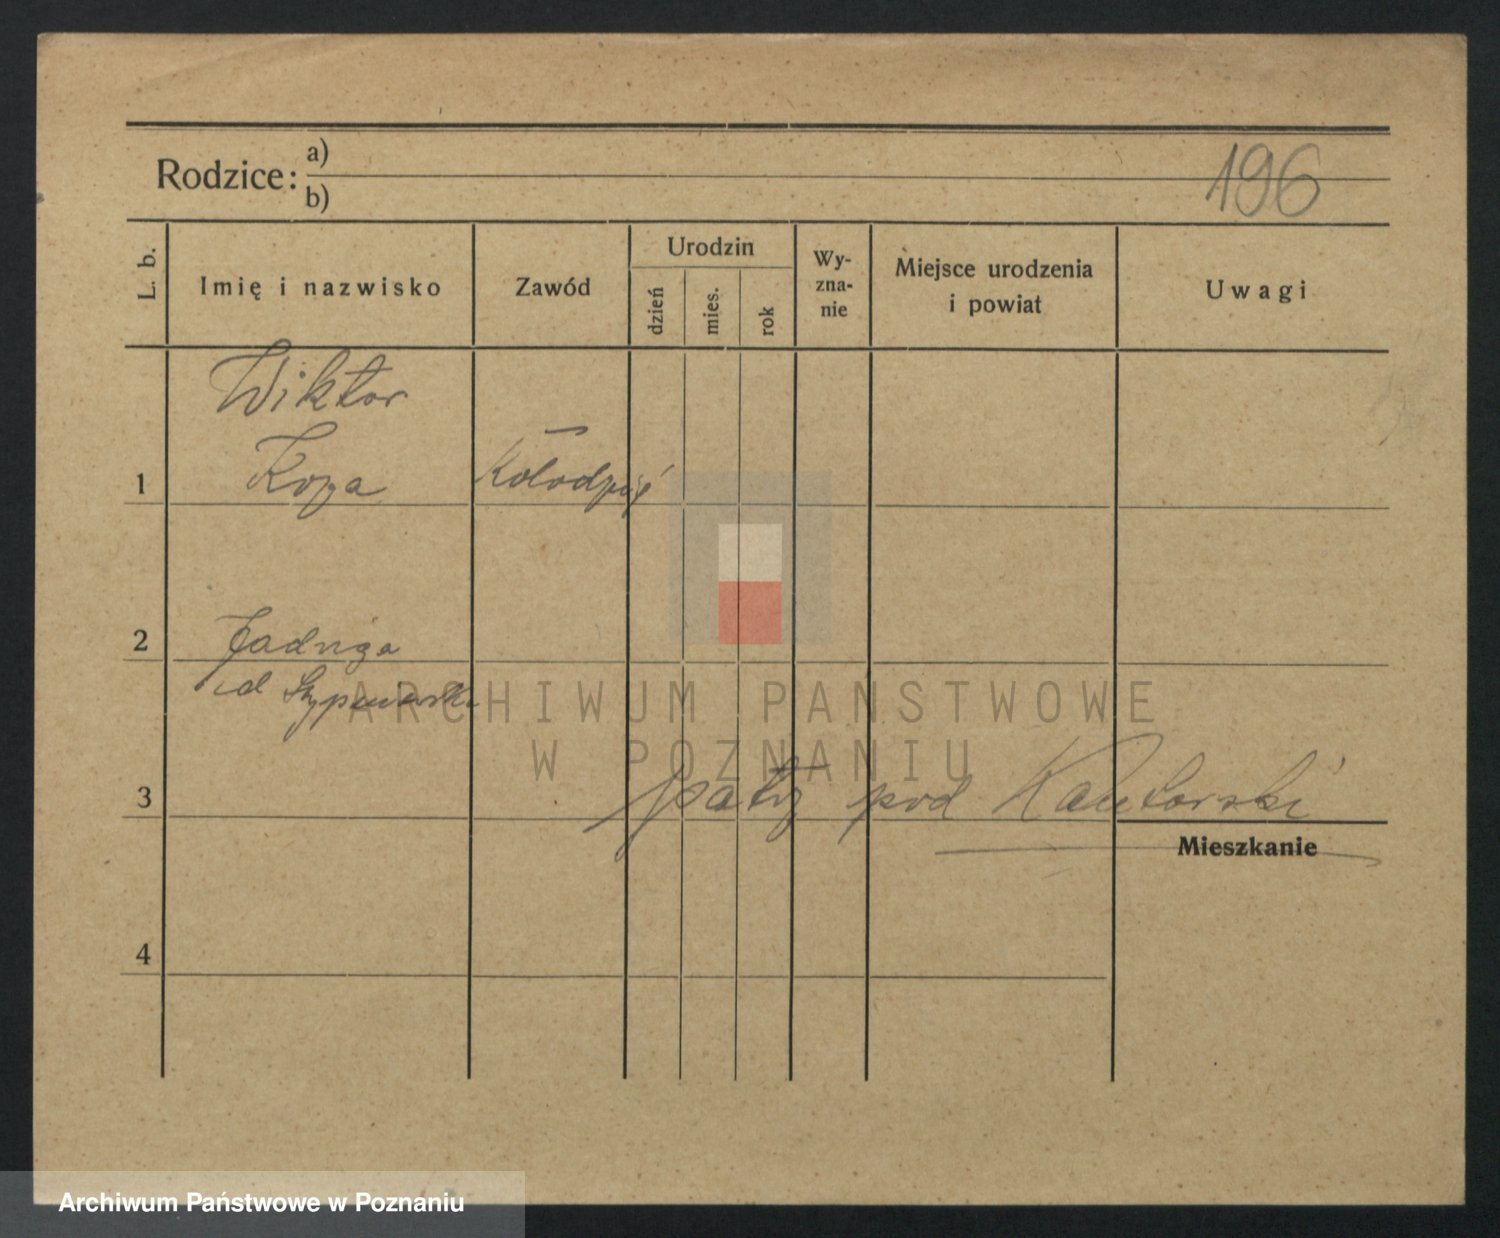 Rodzice: a)
b)
196
L. b.
Imię i nazwisko
Zawód
Urodzin
dzień
mies.
rok
Wy-
zna-
nie
Miejsce urodzenia
i powiat
Uwagi
Wiktor
1 Koza Kołodziej
2 Jadwiga
ARCHIWUM PAŃSTWOWE
W POZNANIU
3 patrz pod Kantorski
Mieszkanie
4
Archiwum Państwowe w Poznaniu